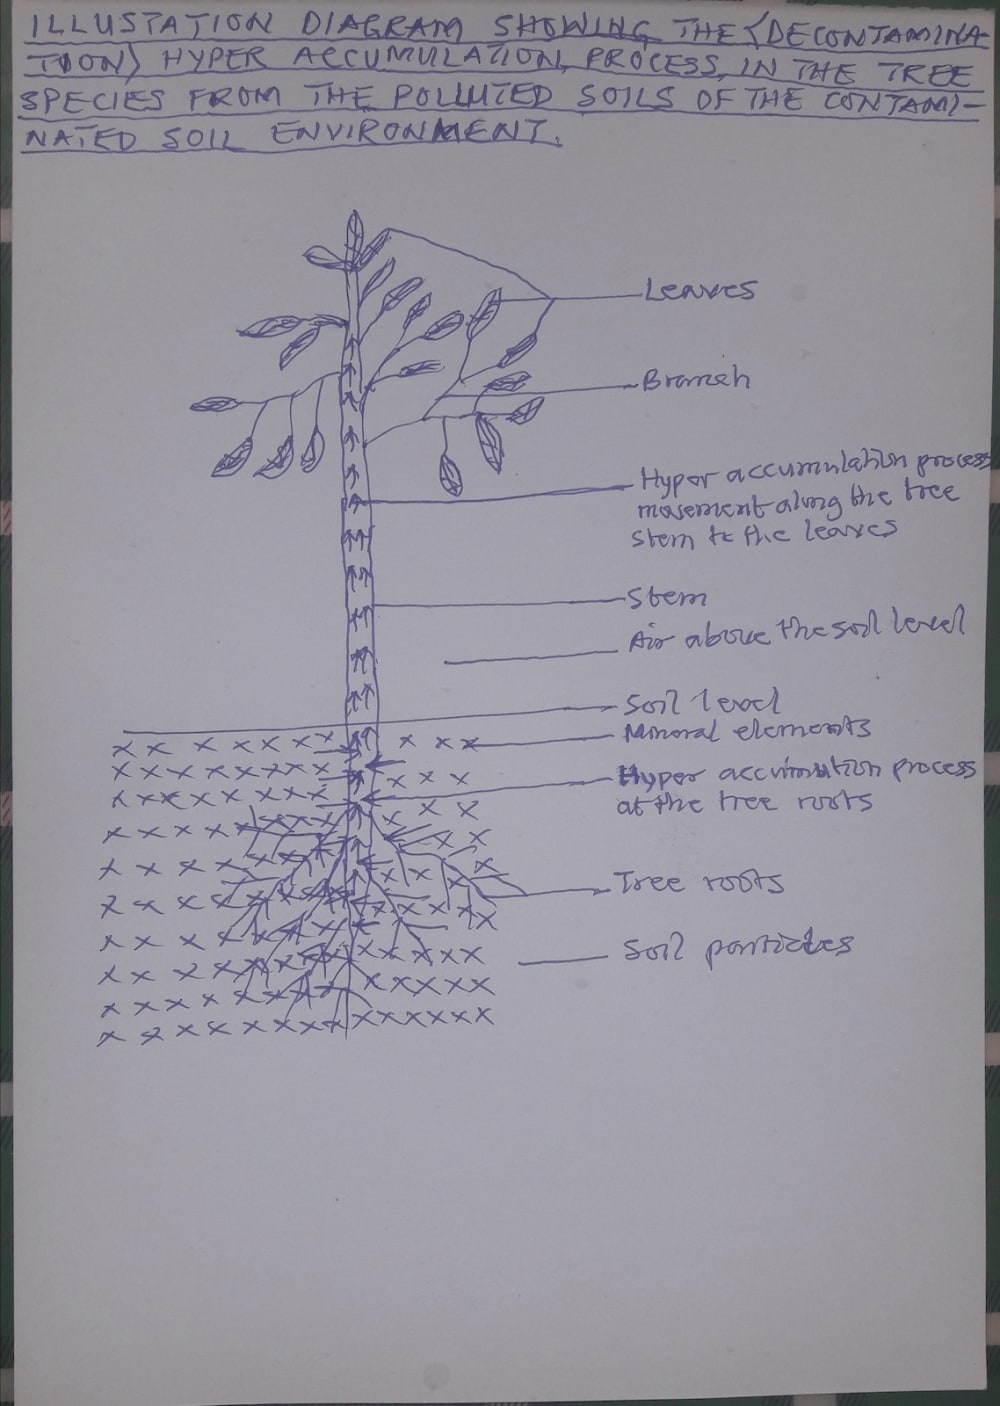 ILLUSTATION DIAGRAM SHOWING THE (DECONTAMINA-
TION) HYPER ACCUMULATION PROCESS IN THE TREE
SPECIES FROM THE POLLUTED SOILS OF THE CONTAMI-
NATED SOIL ENVIRONMENT.
Leaves
Branch
Hyper accumulation process
movement along the tree
stem to the leaves
Stem
Air above the soil level
Soil level
Mineral elements
Hyper accumulation process
at the tree roots
Tree roots
Soil particles